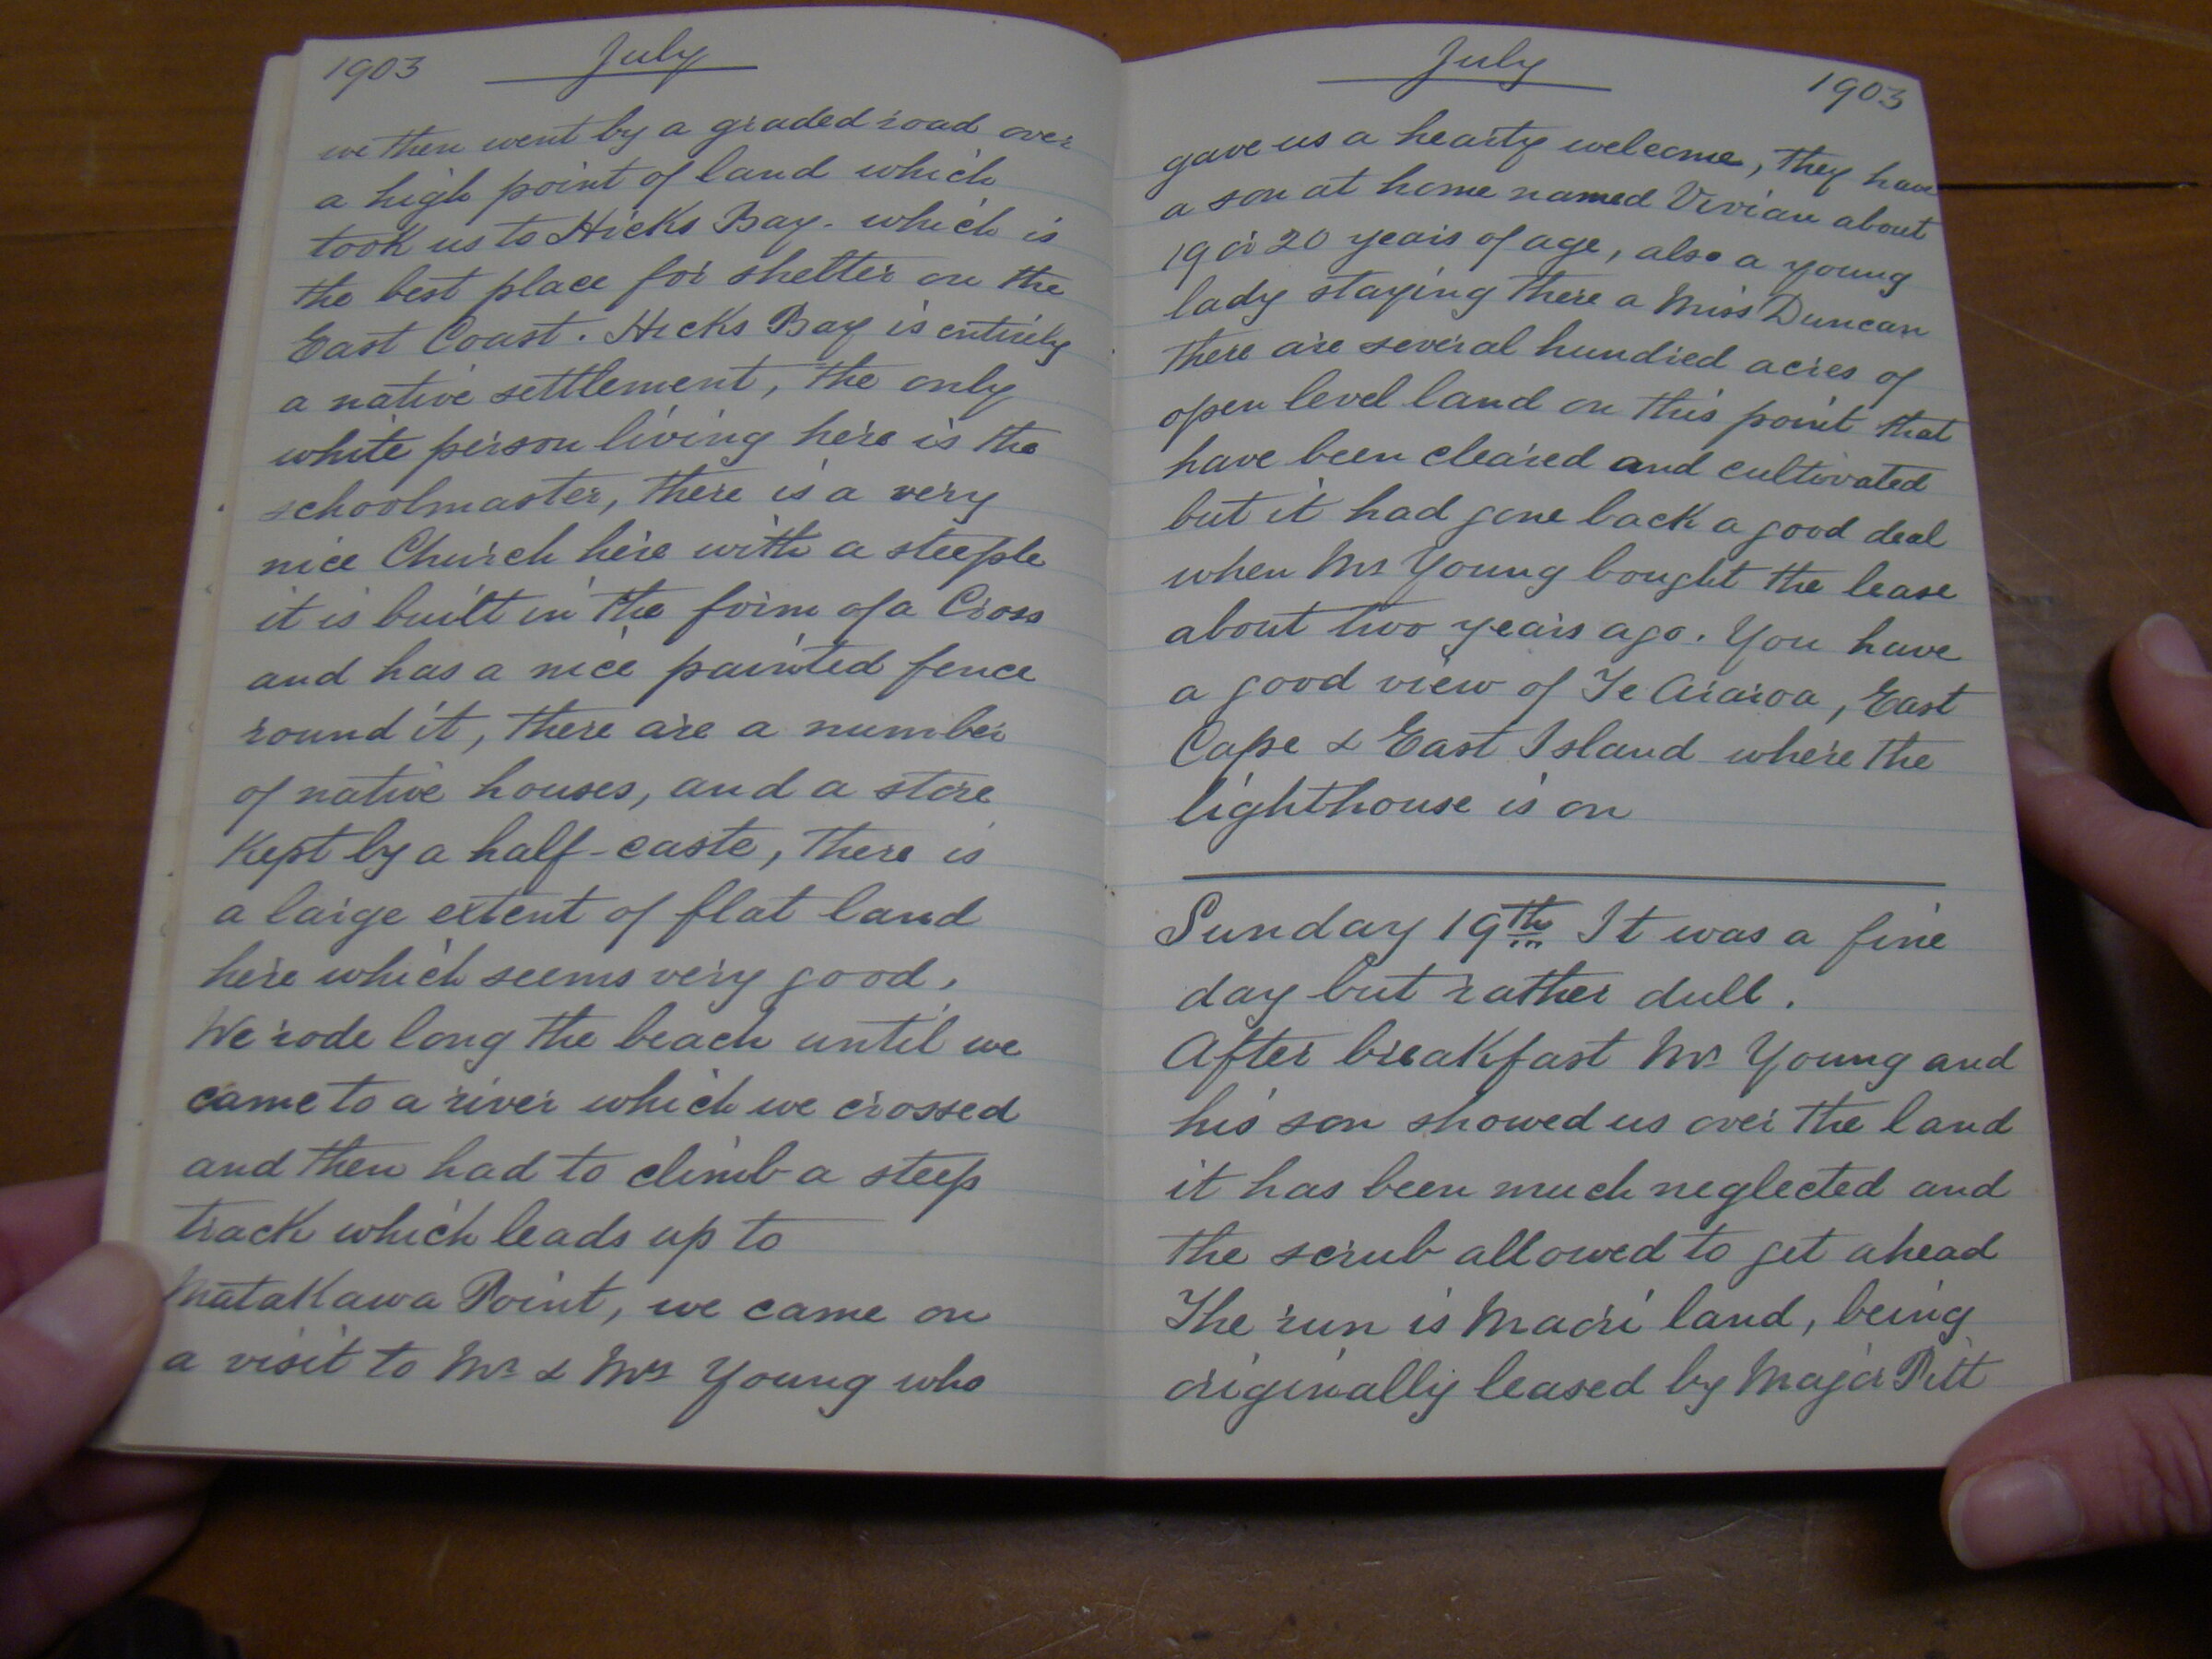 1903 July
we then went by a graded road over
a high point of land which
took us to Hicks Bay. which is
the best place for shelter on the
East Coast. Hicks Bay is entirely
a native settlement, the only
white person living here is the
schoolmaster, there is a very
nice Church here with a steeple
it is built in the form of a Cross
and has a nice painted fence
round it, there are a number
of native houses, and a store
Kept by a half-caste, there is
a large extent of flat land
here which seems very good.
We rode long the beach until we
came to a river which we crossed
and then had to climb a steep
track which leads up to
MataKawa Point, we came on
a visit to Mr & Mrs Young who
July 1903
gave us a hearty welcome, they have
a son at home named Vivian about
19 or 20 years of age, also a young
lady staying there a Miss Duncan
there are several hundred acres of
open level land on this point that
have been cleared and cultivated
but it had gone back a good deal
when Mr Young bought the lease
about two years ago. You have
a good view of Te Araroa, East
Cape & East Island where the
lighthouse is on
Sunday 19th It was a fine
day but rather dull.
After breakfast Mr Young and
his son showed us over the land
it has been much neglected and
the scrub allowed to get ahead
The run is Maori land, being
originally leased by Major Pitt